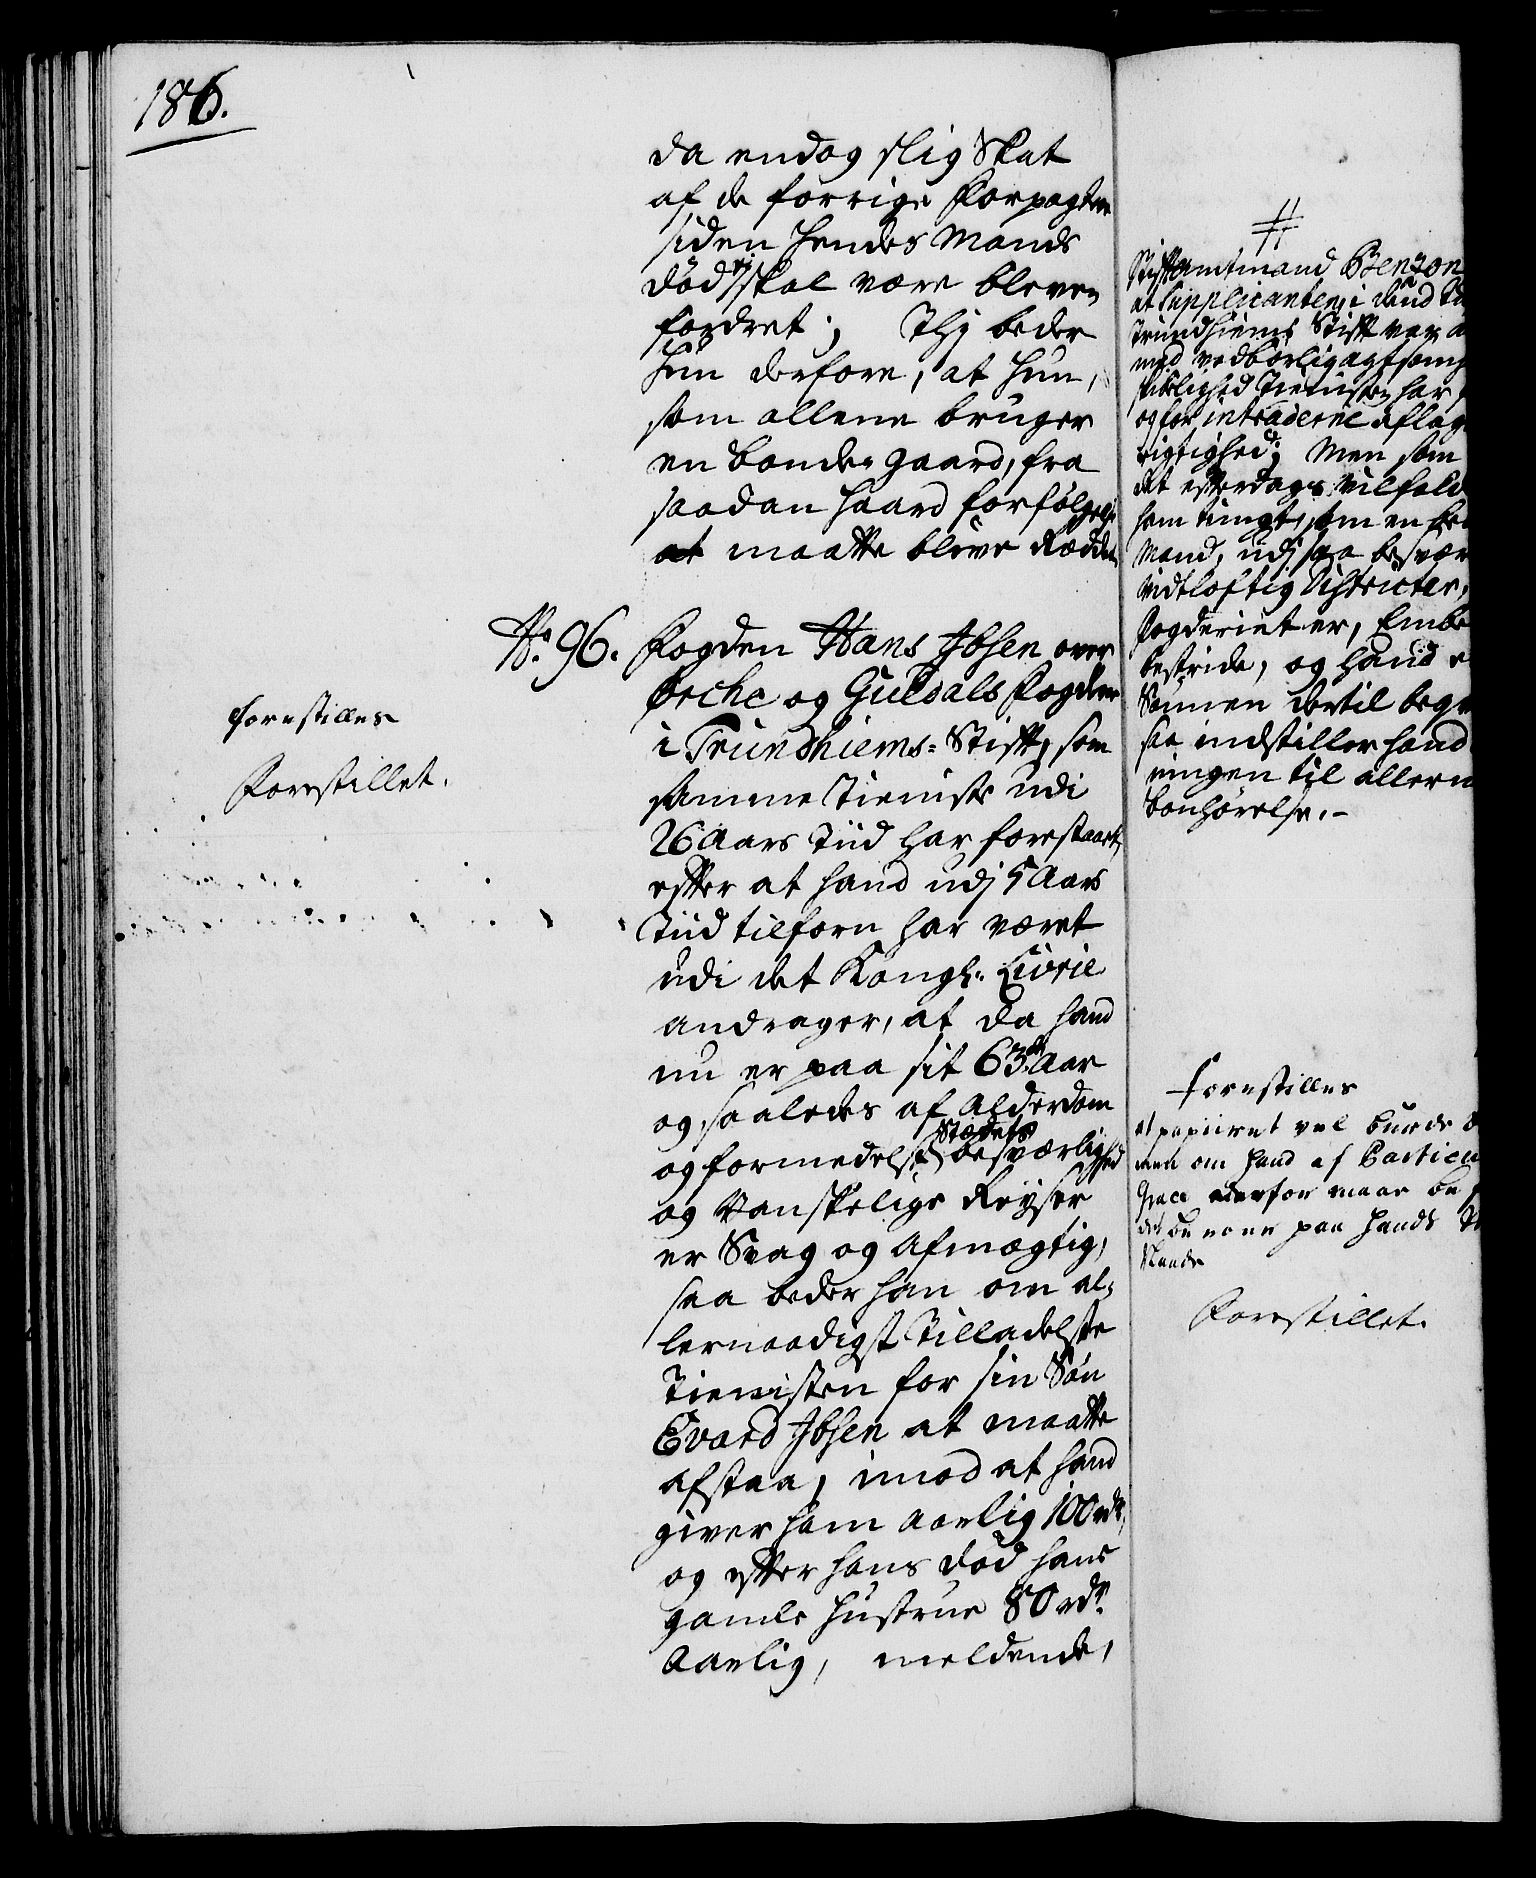 186.
da endog slig Skat
af de forrige Forpagtere
siden hendes Mands
død ej skal være bleven
fordret; Thj beder
hun derfore, at hun,
som allene bruger
en bonde gaard, fra
saadan haard forfølgelse
at maatte blive Rædded
No. 96. Fogden Hans Ibsen over
Orche og Guldals Fogderie
i Trundhiems-Stift, som
samme Tieniste udi
26 Aars Tiid har forestaaet,
efter at hand udj 5 Aars
Tiid tilforn har været
udi det Kongl. Livrie
andrager, at da hand
nu er paa sit 63de Aar
og saaledes af Alderdom
og formedelst Stædets besværlighed
og Vanskelige Reyser
er Svag og Afmægtig,
saa beder han om al-
lernaadigst Tilladelse
Tienisten for sin Søn
Evard Ibsen at maatte
afstaa, imod at hand
giver ham aarlig 100 rdr.
og efter hans død hans
gamle Hustrue 80 rdr.
Aarlig, meldende,
forestilles
Forestillet.
Stiftamtmand Benzon
at Supplicanten, i dend
Trundhiems Stift var
med vedbørlig agtsomh
skikelighed Tienisten har
og for intraderne aflag
rigtighed; Men som
det efterdags vilfald
ham tungt, som en
Mand, udj saa besvær
vidtløftig Districter,
Fogderiet er, Embe
bestride, og hand
Sønnen dertil beqv
saa indstiller hand
ningen til allern
bønhørelse.-
forestilles
at papiiret vel burde
men om hand af Particu
Grace derfor maae be
det beroer paa hands
Naade
Forestillet.